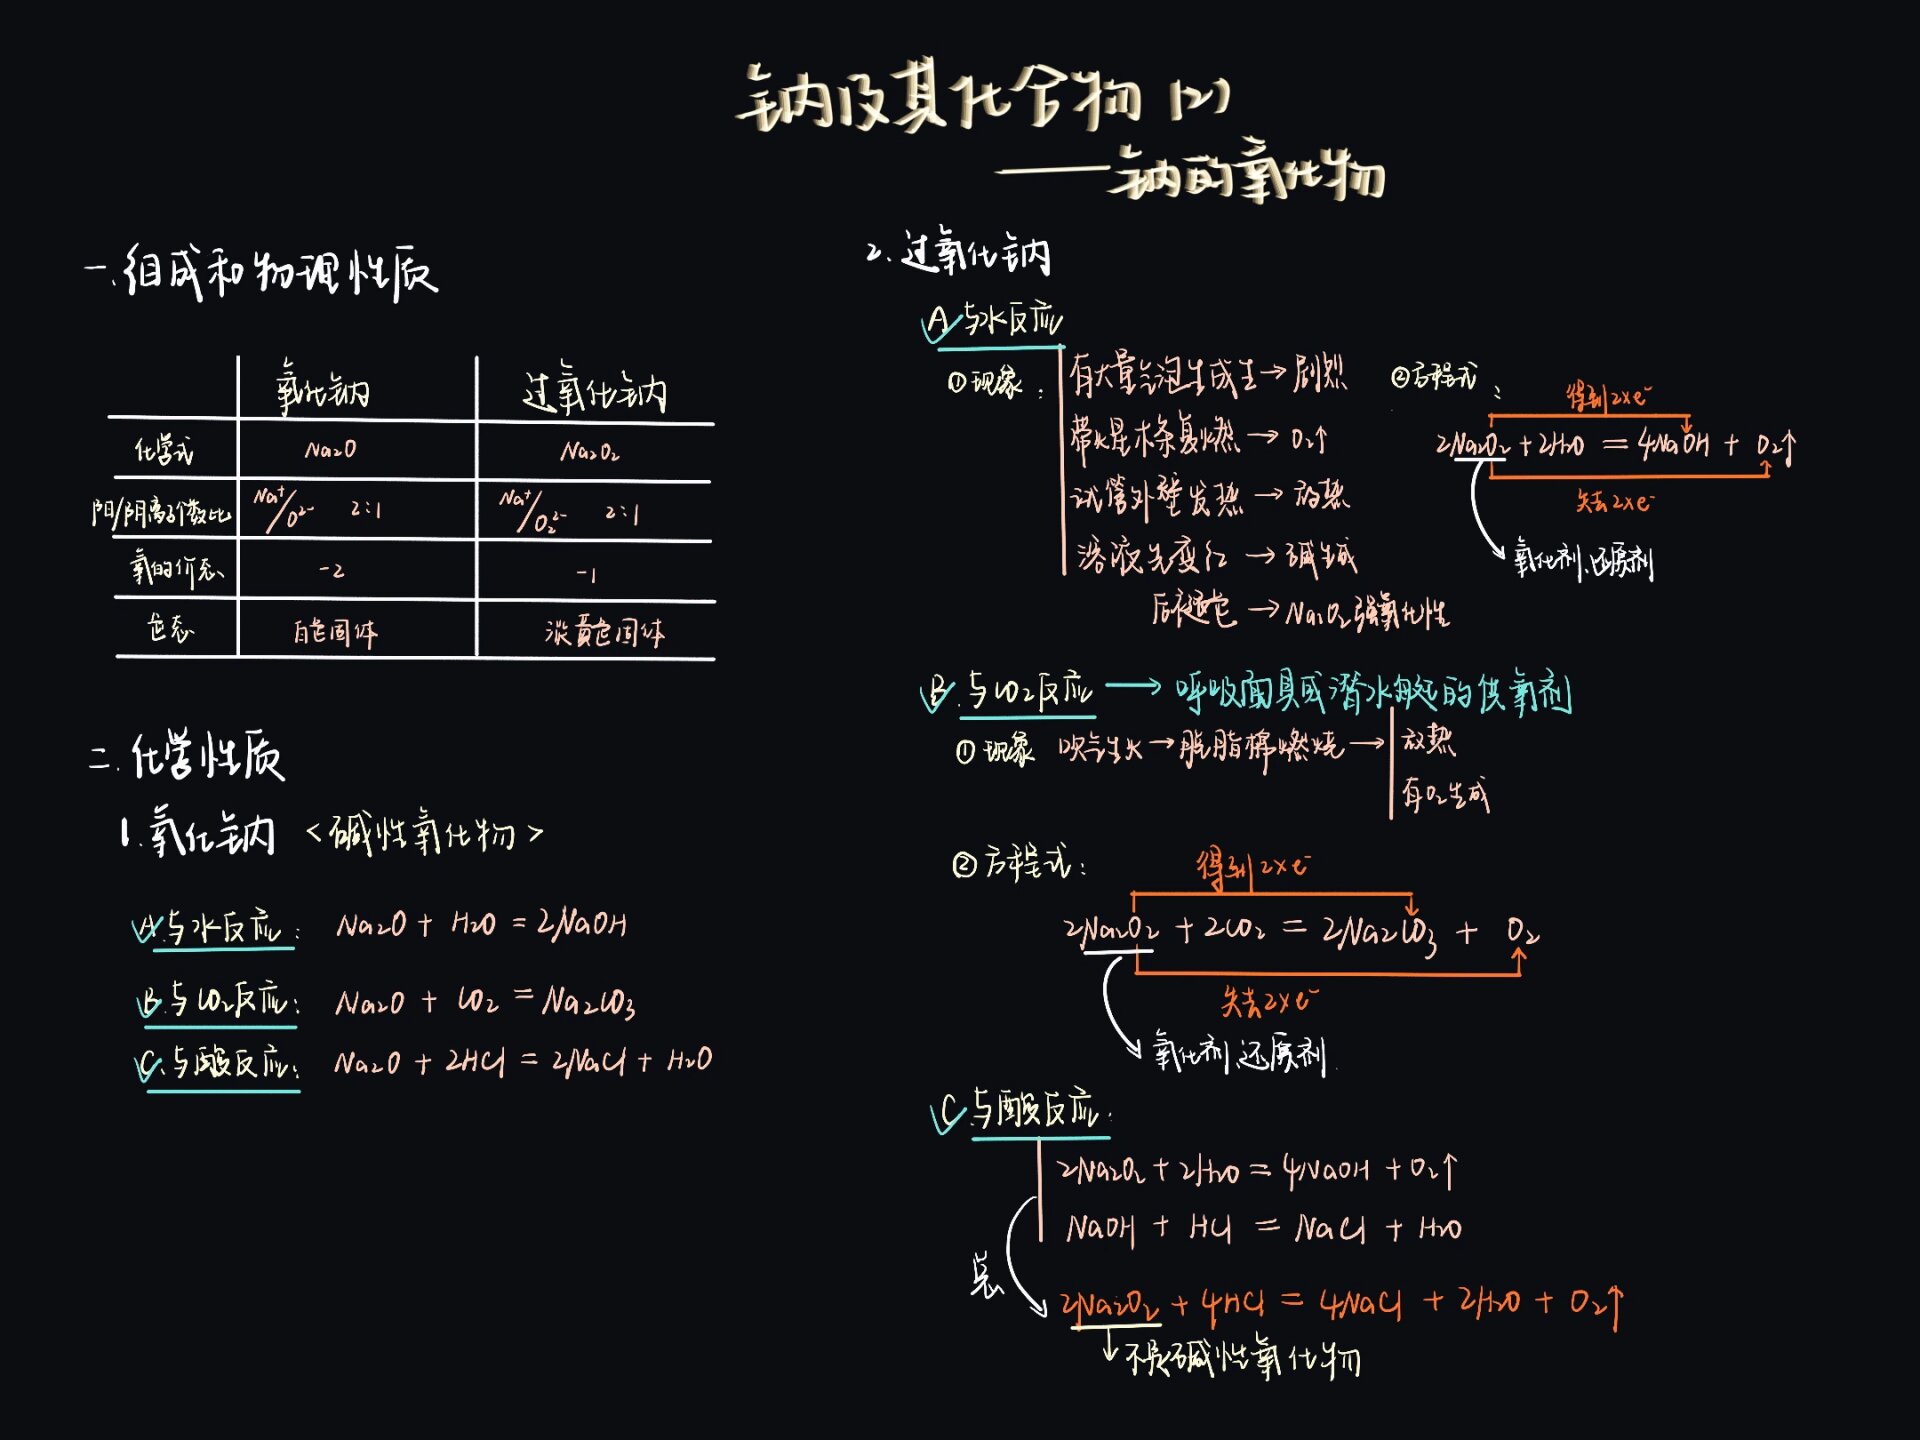 钠及其化合物(2)
——钠的氧化物
一.组成和物理性质
氧化钠 过氧化钠
化学式 Na₂O Na₂O₂
阳/阴离子个数比 Na⁺/O²⁻ 2:1 Na⁺/O₂²⁻ 2:1
氧的价态 -2 -1
色态 白色固体 淡黄色固体
二.化学性质
1.氧化钠 <碱性氧化物>
A与水反应: Na₂O + H₂O = 2NaOH
B与CO₂反应: Na₂O + CO₂ = Na₂CO₃
C.与酸反应: Na₂O + 2HCl = 2NaCl + H₂O
2.过氧化钠
A与水反应
①现象:
有大量气泡生成生→剧烈
带火星木条复燃→O₂↑
试管外壁发热→放热
溶液先变红→碱生成
后褪色→Na₂O₂强氧化性
②方程式:
得到2×e⁻
2Na₂O₂+2H₂O=4NaOH+O₂↑
失去2×e⁻
氧化剂.还原剂
B.与CO₂反应→呼吸面具或潜水艇的供氧剂
①现象 吹气生火→脱脂棉燃烧→
放热
有O₂生成
②方程式:
得到2×e⁻
2Na₂O₂+2CO₂=2Na₂CO₃+O₂
失去2×e⁻
氧化剂.还原剂.
C.与酸反应:
2Na₂O₂+2H₂O=4NaOH+O₂↑
NaOH+HCl=NaCl+H₂O
总
2Na₂O₂+4HCl=4NaCl+2H₂O+O₂↑
不是碱性氧化物